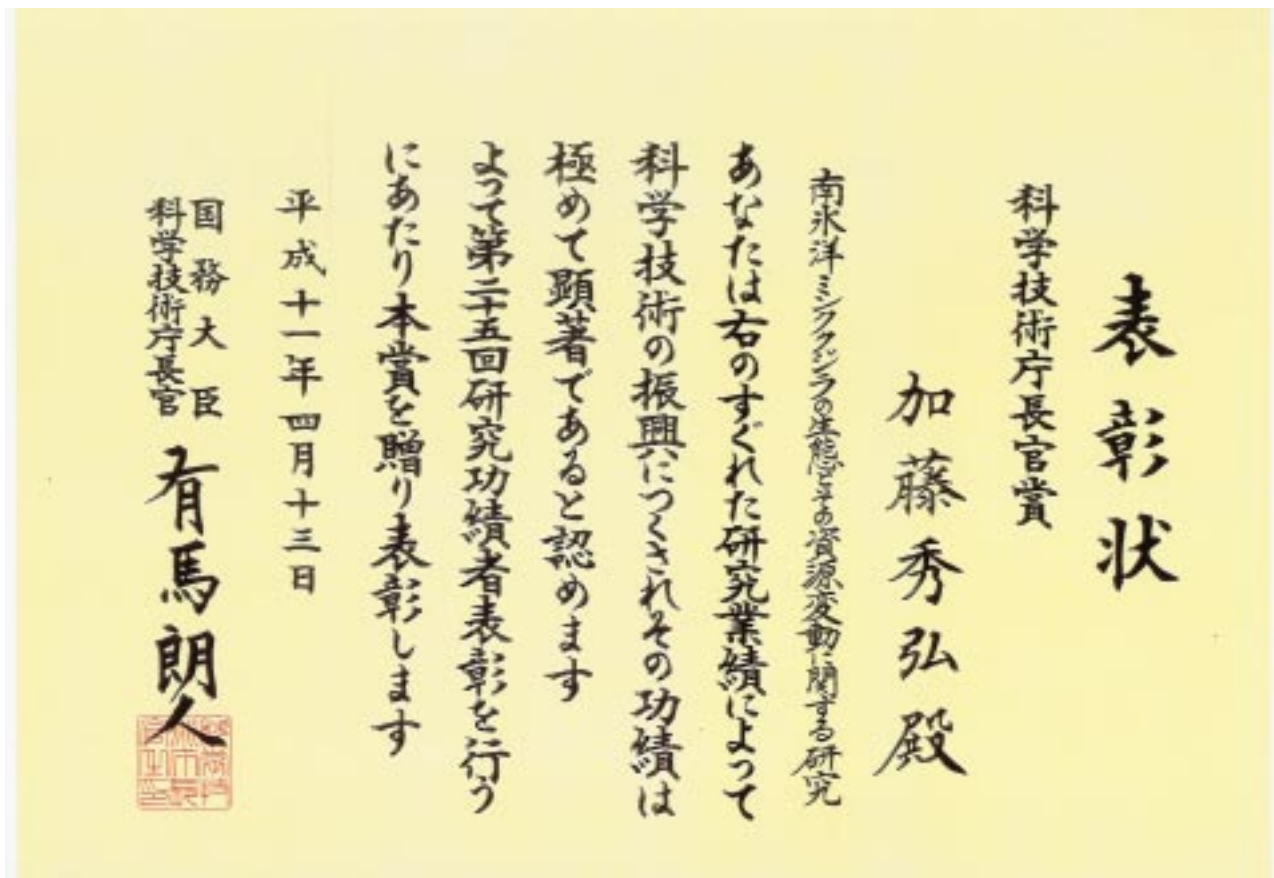 表彰状
科学技術庁長官賞
加藤秀弘殿
南氷洋ミンククジラの生態とその資源変動に関する研究
あなたは右のすぐれた研究業績によって
科学技術の振興につくされその功績は
極めて顕著であると認めます
よって第二十五回研究功績者表彰を行う
にあたり本賞を贈り表彰します
平成十一年四月十三日
国務大臣
科学技術庁長官
有馬朗人